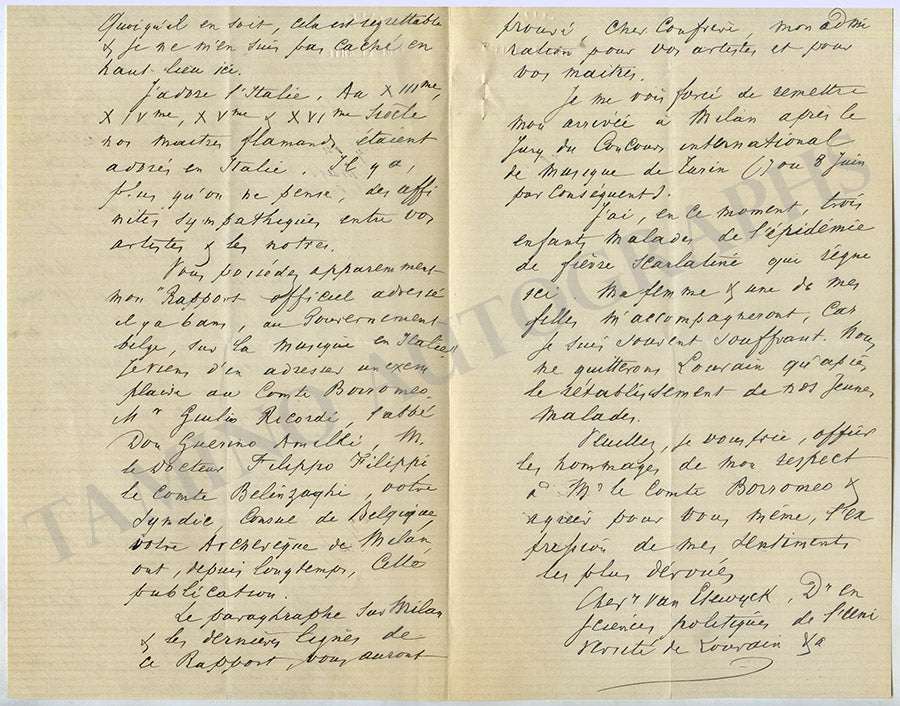 Quoiqu'il en soit, cela est regrettable
& je ne m'en suis pas caché en
haut-lieu ici.
J'adore l'Italie. Au XIIIme,
XIVme, XVme & XVIme Siècle
nos maitres flamands étaient
adorés en Italie. Il y a,
plus qu'on ne pense, des affi
nités sympathiques entre vos
artistes & les notres.
Vous possédez apparemment
mon "Rapport officiel adressé
il y a 6 ans, au Gouvernement
belge, sur la musique en Italie"
Je viens d'en adresser un exem
plaire au Comte Borromeo.
Mr Giulio Ricordi, l'abbé
Don Guerino Amelli, M.
le Docteur Filippo Filippi
le Comte Belinzaghi, votre
Syndic, Consul de Belgique
votre Archevêque de Milan
ont, depuis longtemps, cette
publication.
Le paraghraphe sur Milan
& les dernières lignes de
ce Rapport, vous auront
prouvé, cher Confrère, mon admi
ration pour vos artistes et pour
vos maitres.
Je me vois forcé de remettre
mon arrivée à Milan après le
Jury du Concours international
de Musique de Turin (7 ou 8 Juin
par conséquent).
J'ai, en ce moment, trois
enfants malades de l'épidémie
de fièvre scarlatine qui règne
ici. Ma femme & une de mes
filles m'accompagneront, car
je suis souvent souffrant. Nous
ne quitterons Louvain qu'après
le rétablissement de nos jeunes
malades.
Veuillez, je vous prie, offrir
les hommages de mon respect
à Mr le Comte Borromeo &
agréer pour vous même, l'ex
pression de mes sentiments
les plus dévoués
Cher van Elewyck, Dr en
sciences politiques de l'Uni
versité de Louvain &a
TAMINO AUTOGRAPHS